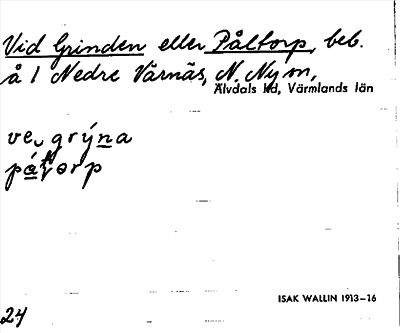 Vid Grinden eller Påltorp, beb.
å 1 Nedre Värnäs, N. Ny sn,
Älvdals hd, Värmlands län
ve, grýna
pátorp
ISAK WALLIN 1913-16
24